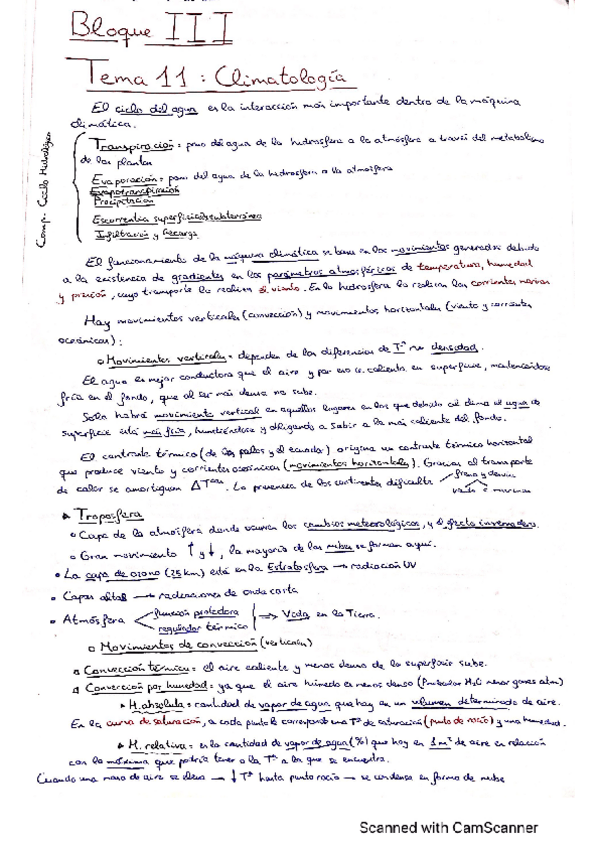 Bloque III
Tema 11 : Climatología
El ciclo del agua es la interacción más importante dentro de la máquina
climática.
Comp. Ciclo Hidrológico
Transpiración = paso del agua de la hidrosfera a la atmósfera a través del metabolismo
de las plantas
Evaporación = paso del agua de la hidrosfera a la atmósfera
Evapotranspiración
Precipitación
Escorrentía superficial subterránea
Infiltración y Recarga
El funcionamiento de la máquina climática se basa en los movimientos generados debido
a la existencia de gradientes en los parámetros atmosféricos de temperatura, humedad
y presión, cuyo transporte lo realiza el viento. En la hidrosfera lo realizan las corrientes marinas
Hay movimientos verticales (convección) y movimientos horizontales (viento y corrientes
oceánicas):
Movimientos verticales = dependen de las diferencias de Tª densidad.
El agua es mejor conductora que el aire y por eso se calienta en superficie, manteniéndose
fría en el fondo, que al ser más densa no sube.
Solo habrá movimiento vertical en aquellos lugares en los que debido al clima el agua de
superficie está más fría, hundiéndose y obligando a subir a la más caliente del fondo.
El contraste térmico (de los polos y el ecuador) origina un contraste térmico horizontal
que produce viento y corrientes oceánicas (movimientos horizontales). Gracias al transporte
de calor se amortiguan ΔT. La presencia de los continentes dificulta
viento
Troposfera
Capa de la atmósfera donde ocurren los cambios meteorológicos, y el efecto invernadero.
Gran movimiento ↑ y ↓, la mayoría de las nubes se forman aquí.
La capa de ozono (25 km) está en la Estratosfera → radiación UV
Capas altas → radiaciones de onda corta
Atmósfera función protectora
regulador térmico ⇒ Vida en la Tierra.
Movimientos de convección (verticales)
Convección térmica = el aire caliente y menos denso de la superficie sube.
Convección por humedad = ya que el aire húmedo es menos denso ( H₂O menor gases atm)
H. absoluta = cantidad de vapor de agua que hay en un volumen determinado de aire.
En la curva de saturación, a cada punto le corresponde una Tª de saturación (punto de rocío) y una humedad.
H. relativa = es la cantidad de vapor de agua (%) que hay en 1 m³ de aire en relación
con la máxima que podría tener a la Tª a la que se encuentra.
Cuando una masa de aire se eleva → ↓ Tª hasta punto rocío → se condensa en forma de nube
Scanned with CamScanner